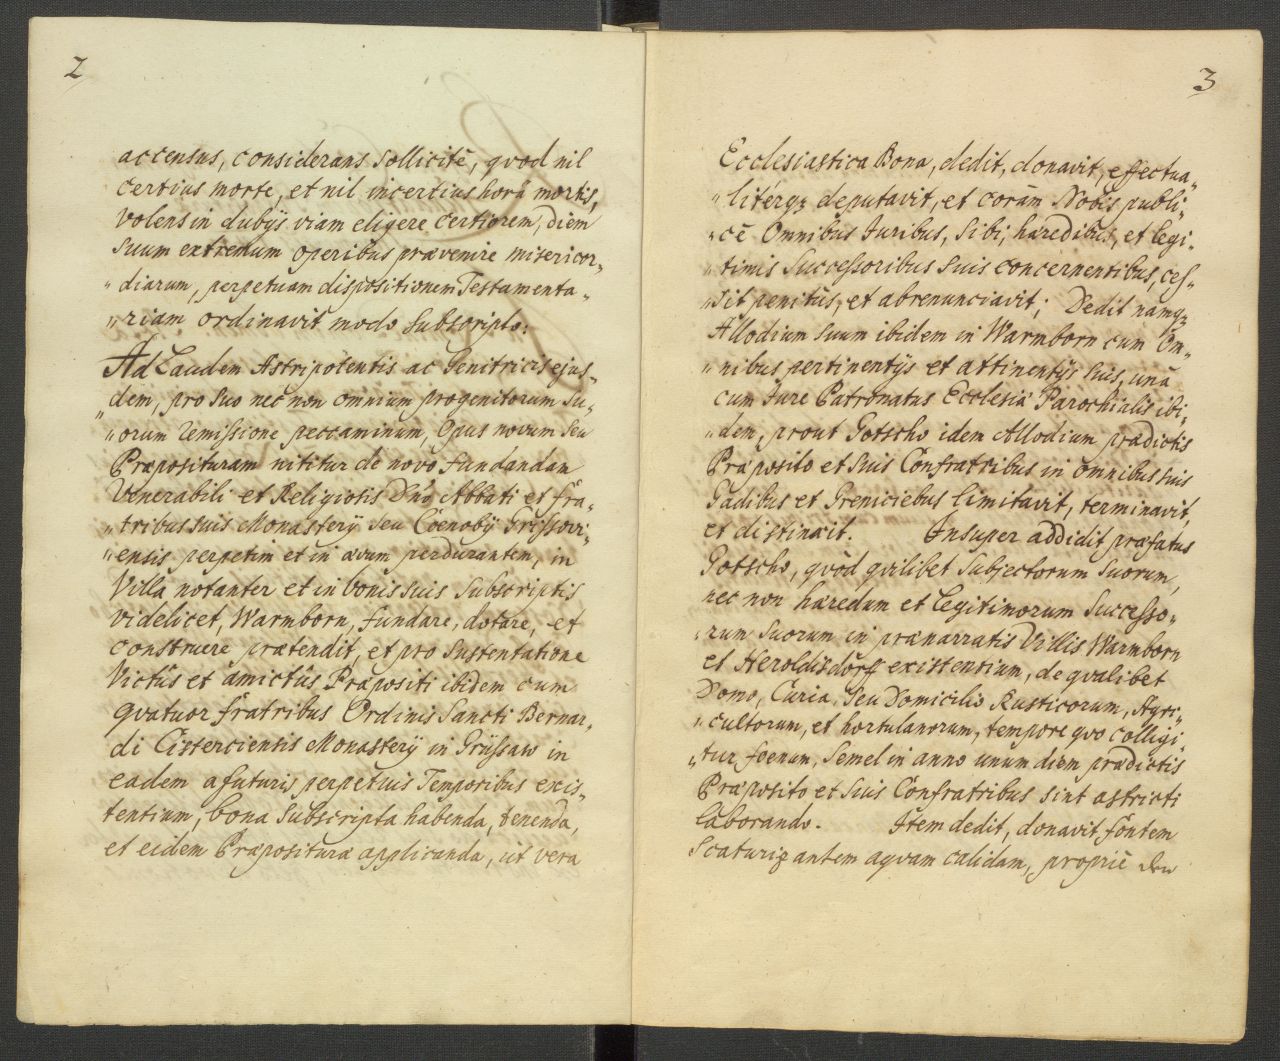 2
accensus, considerans sollicitè, qvod nil
certius morte, et nil incertius horâ mortis,
volens in dubÿs viam eligere certiorem, diem
suum extremum operibus prævenire misericor„
„diarum, perpetuam dispositionem Testamenta„
„riam ordinavit modo subscripto:
Ad Laudem Astripotentis ac Genitricis ejus„
„dem, pro suo nec non omnium progenitorum su„
„orum remissione peccaminum, Opus novum seu
Præposituram nititur de novo fundandam
Venerabili et Religiosis Dn̄o Abbati et fra„
„tribus suis Monasterÿ seu Coenobÿ Grissovi„
„ensis perpetim et in ævum perdurantem, in
Villa notanter et in bonis suis subscriptis
videlicet, Warmborn, fundare, dotare, et
construere prætendit, et pro sustentatione
Victûs et amictûs Præpositi ibidem cum
qvatuor fratribus Ordinis Sancti Bernar„
di Cisterciensis Monasterÿ in Grüssaw in
eadem a futuris perpetuis Temporibus exis„
tentium, bona subscripta habenda, tenenda,
et eidem Præposituræ applicanda, ut vera
3
Ecclesiastica Bona, dedit, donavit, effectua„
„litérqʒ deputavit, et coràm Nobis publi„
„cè Omnibus Juribus, sibi, hæredibus, et legi„
„timis successoribus suis concernentibus, ces„
„sit penitùs, et abrenunciavit; Dedit namqʒ
Allodium suum ibidem in Warmborn cum Om„
„nibus pertinentÿs et attinentÿs suis, unà
cum Jure Patronatus Ecclesiæ Parochialis ibi„
„dem, prout Gotscho idem Allodium prædictis
Præposito et suis Confratribus in omnibus suis
Gadibus et Greniciebus limitavit, terminavit,
et distinxit. Insuper addidit præfatus
Gotscho, qvòd qvilibet subjectorum suorum,
nec non hæredum et legitimorum successo„
„rum suorum in prænarratis Villis Warmborn
et Heroldisdorff existentium, de qvalibet
Domo, Curia, seu Domicilio Rusticorum, Agri„
„cultorum, et hortulanorum, tempore qvo colligi„
„tur foenum, semel in anno unum diem prædictis
Præposito et suis Confratribus sint astricti
laborando. Item dedit, donavit fontem
scaturizantem aqvam calidam, propriè den